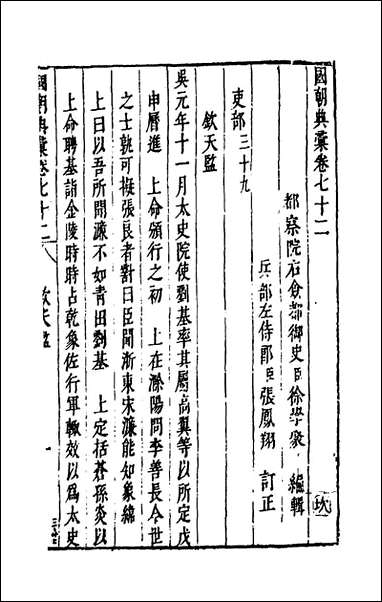 國朝典彙卷七十二
都察院右僉都御史臣徐學聚 編輯
兵部左侍郎臣張鳳翔 訂正
吏部三十九
欽天監
吳元年十一月太史院使劉基率其屬高翼等以所定戊
申曆進 上命頒行之初 上在滁陽問李善長今世
之士孰可擬張良者對曰臣聞浙東宋濂能知象緯
上曰以吾所聞濂不如青田劉基 上定括蒼孫炎以
上命聘基詣金陵時時占乾象佐行軍輒效以爲太史
國朝典彙卷七十二 欽天監